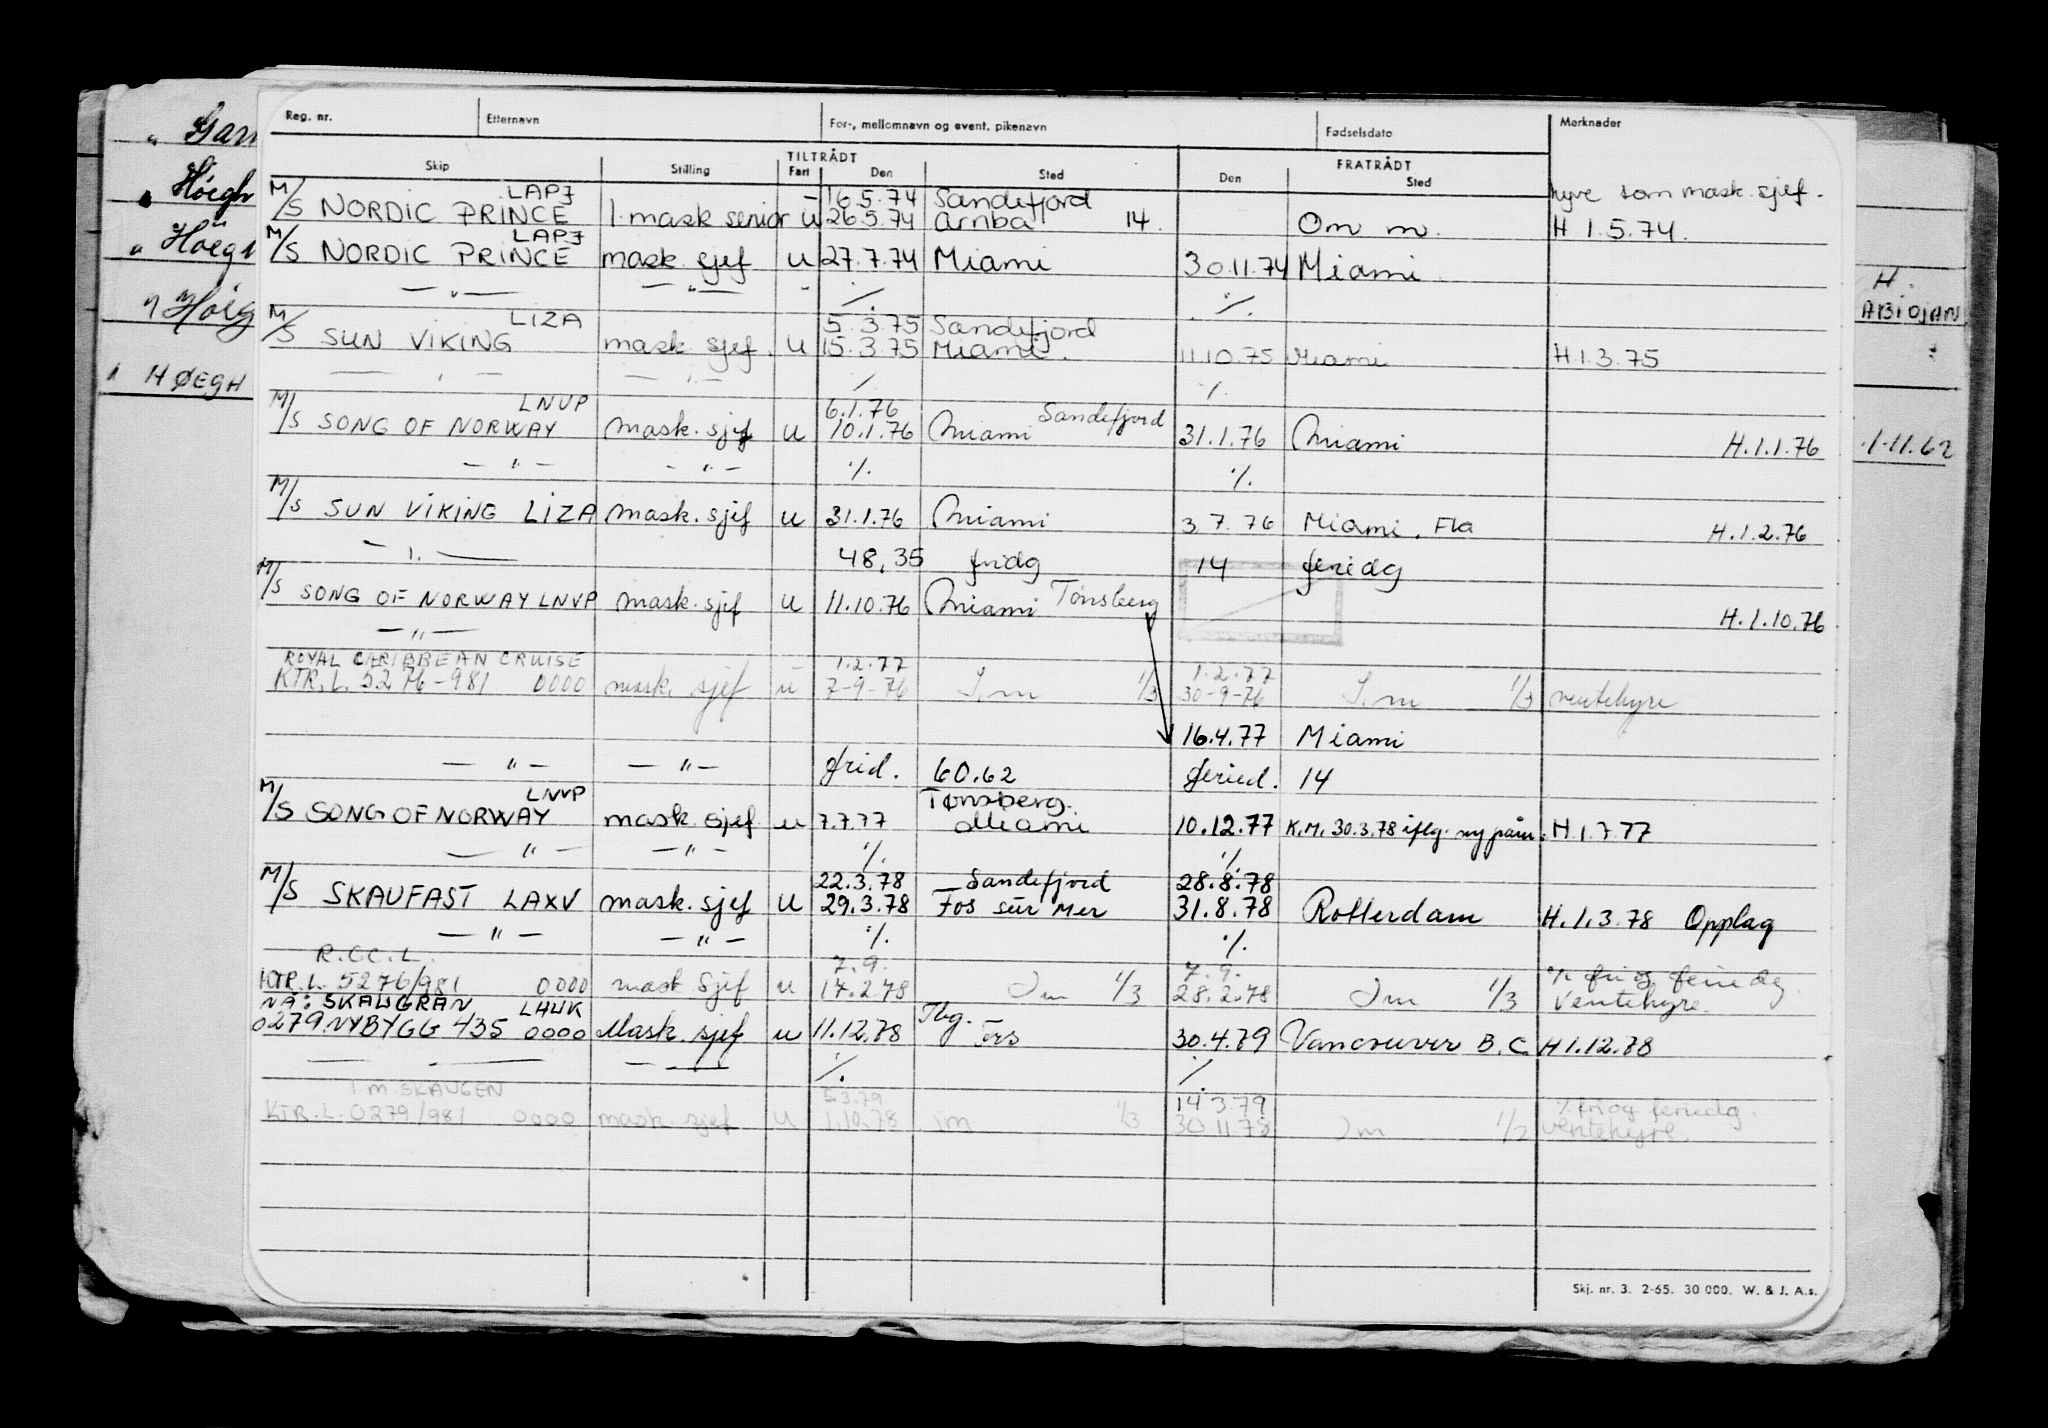 Reg. nr. Etternavn For-, mellomnavn og event. pikenavn Fødselsdato Merknader
TILTRÅDT FRATRÅDT
Skip Stilling Fart Den Sted Den Sted
LAPJ - 16.5.74 Sandefjord hyre som mask. sjef.
M/S NORDIC PRINCE 1. mask senior u 26.5.74 Aruba 14. Om m. H 1.5.74.
LAPJ
M/S NORDIC PRINCE mask. sjef u 27.7.74 Miami 30.11.74 Miami
— " — — " — " ./. ./.
LIZA 5.3.75 Sandefjord
M/S SUN VIKING mask. sjef. u 15.3.75 Miami. 11.10.75 Miami H.1.3.75
— " — — " — ./. ./.
LNVP 6.1.76 Sandefjord
M/S SONG OF NORWAY mask. sjef u 10.1.76 Miami 31.1.76 Miami H.1.1.76
— " — — " — ./. ./.
M/S SUN VIKING LIZA mask. sjef u 31.1.76 Miami 3.7.76 Miami. Fla H.1.2.76
— " — 48,35 fridg 14 feriedg
M/S SONG OF NORWAY LNVP mask. sjef u 11.10.76 Miami Tønsberg H.1.10.76
— " —
ROYAL CARIBBEAN CRUISE 1.2.77 1.2.77
KTR.L. 5276-981 0000 mask. sjef u 7-9-76 I.m 1/3 30-9-76 I.m 1/3 ventehyre
16.4.77 Miami
— " — — " — frid. 60.62 feried. 14
LNVP Tønsberg.
M/S SONG OF NORWAY mask. sjef u 7.7.77 Miami 10.12.77 K.M. 30.3.78 iflg. ny påm. H 1.7.77
— " — — " — ./. ./.
22.3.78 Sandefjord 28.8.78
M/S SKAUFAST LAXV mask. sjef u 29.3.78 Fos sur Mer 31.8.78 Rotterdam H.1.3.78 Opplag
— " — — " — ./. ./.
R.C.C.L. 7.9. 7.9. ./. fri og feriedg.
KTR.L. 5276/981 0000 mask sjef u 17.2.78 Im 1/3 28.2.78 Im 1/3 Ventehyre.
NÅ: SKAUGRAN LHUK
0279.NYBYGG 435 0000 Mask. sjef u 11.12.78 Tbg. 30.4.79 Vancouver B.C. H 1.12.78
— " — — " — ./. ./.
I.M. SKAUGEN 5.3.79 14.3.79 ./. fri og feriedg.
KTR.L. 0279/981 0000 mask sjef u 1.10.78 im 1/3 30.11.78 Im ventehyre.
Skj. nr. 3. 2-65. 30 000. W. & J. A.s.
" Høegh
" HØEGH
H.
ABIDJAN
1-11.62